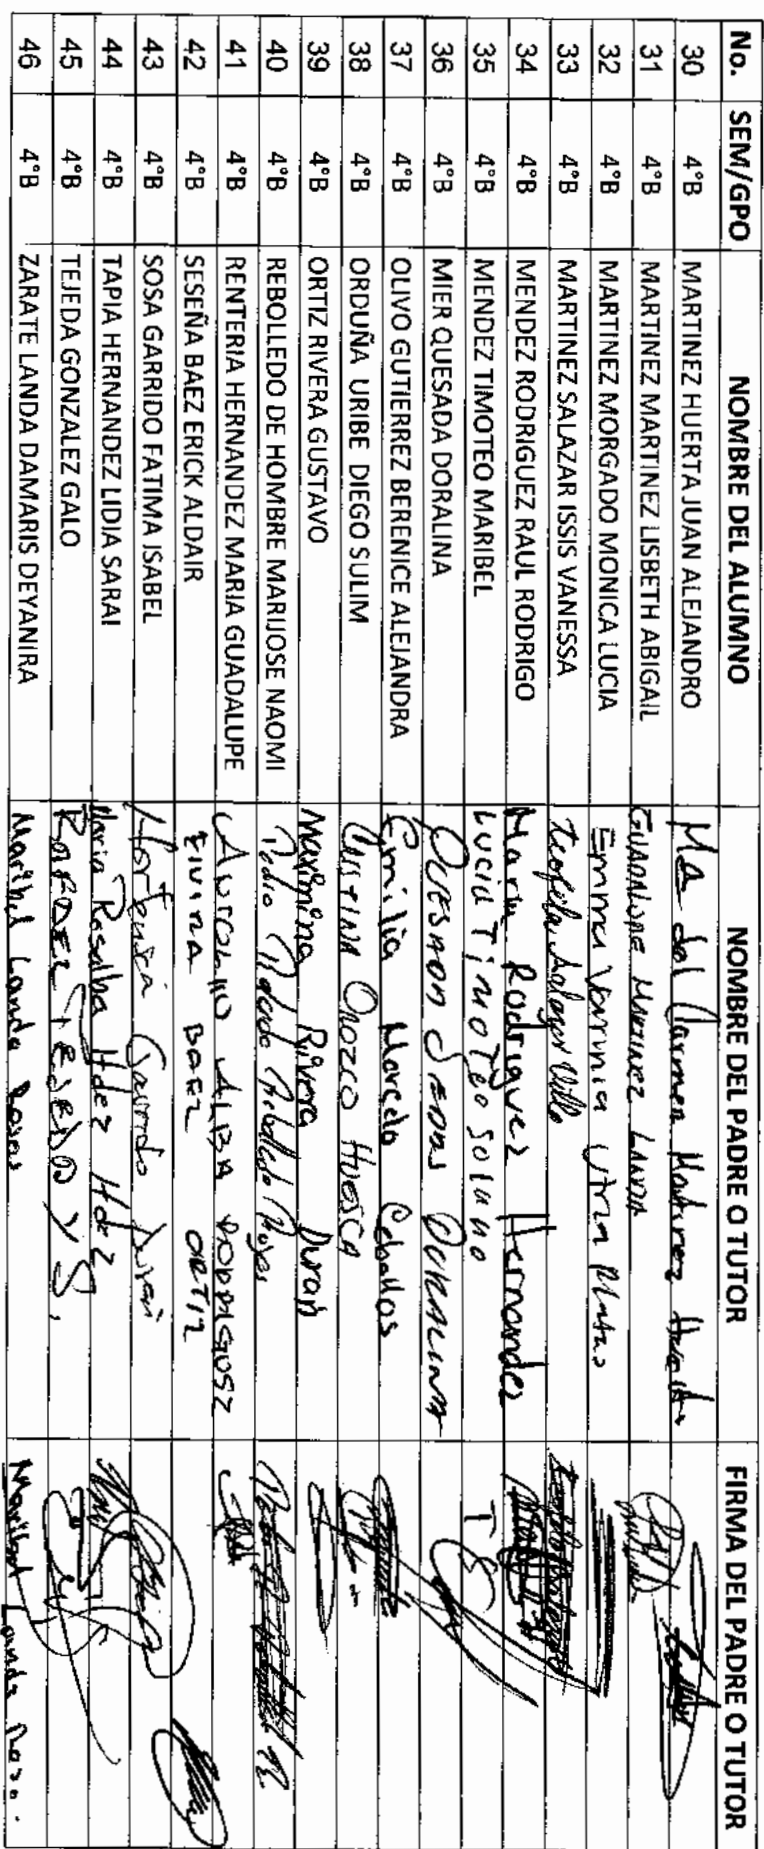 No. SEM/GPO NOMBRE DEL ALUMNO NOMBRE DEL PADRE O TUTOR FIRMA DEL PADRE O TUTOR
30 4°B MARTINEZ HUERTA JUAN ALEJANDRO Ma del Carmen Martinez
31 4°B MARTINEZ MARTINEZ LISBETH ABIGAIL GUADALUPE MARTINEZ LANDA
32 4°B MARTINEZ MORGADO MONICA LUCIA Emma
33 4°B MARTINEZ SALAZAR ISSIS VANESSA Teofila Salazar Villa
34 4°B MENDEZ RODRIGUEZ RAUL RODRIGO Maria Rodriguez Hernandez
35 4°B MENDEZ TIMOTEO MARIBEL Lucia Timoteo Solano
36 4°B MIER QUESADA DORALINA
37 4°B OLIVO GUTIERREZ BERENICE ALEJANDRA Emilia Marcela Ceballos
38 4°B ORDUÑA URIBE DIEGO SULIM CRISTINA OROZCO HUESCA
39 4°B ORTIZ RIVERA GUSTAVO Maximina Rivera Duran
40 4°B REBOLLEDO DE HOMBRE MARIJOSE NAOMI Pedro Rebolledo
41 4°B RENTERIA HERNANDEZ MARIA GUADALUPE ALBA RODRIGUEZ
42 4°B SESEÑA BAEZ ERICK ALDAIR BAEZ ORTIZ
43 4°B SOSA GARRIDO FATIMA ISABEL Hortencia Garrido
44 4°B TAPIA HERNANDEZ LIDIA SARAI Maria Rosalba Hdez Hdez
45 4°B TEJEDA GONZALEZ GALO RAFAEL TEJEDA Y S.
46 4°B ZARATE LANDA DAMARIS DEYANIRA Maribel Landa Rosas Maribel Landa